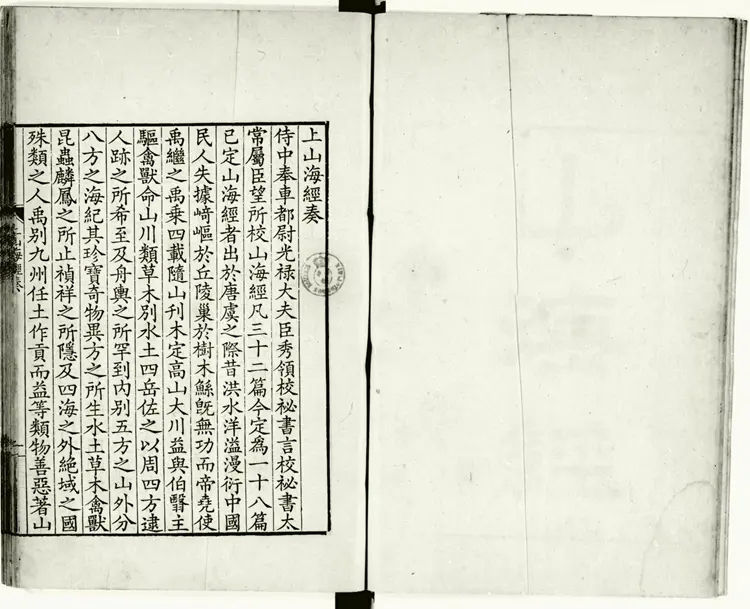 上山海經奏
侍中奉車都尉光禄大夫臣秀領校祕書言校祕書太
常屬臣望所校山海經凡三十二篇今定為一十八篇
已定山海經者出於唐虞之際昔洪水洋溢漫衍中國
民人失據崎嶇於丘陵巢於樹木鯀既無功而帝堯使
禹繼之禹乘四載隨山刋木定高山大川益與伯翳主
驅禽獸命山川類草木別水土四岳佐之以周四方逮
人跡之所希至及舟輿之所罕到内別五方之山外分
八方之海紀其珍寶奇物異方之所生水土草木禽獸
昆蟲麟鳳之所止禎祥之所隱及四海之外絶域之國
殊類之人禹別九州任土作貢而益等類物善惡著山
上山海經奏